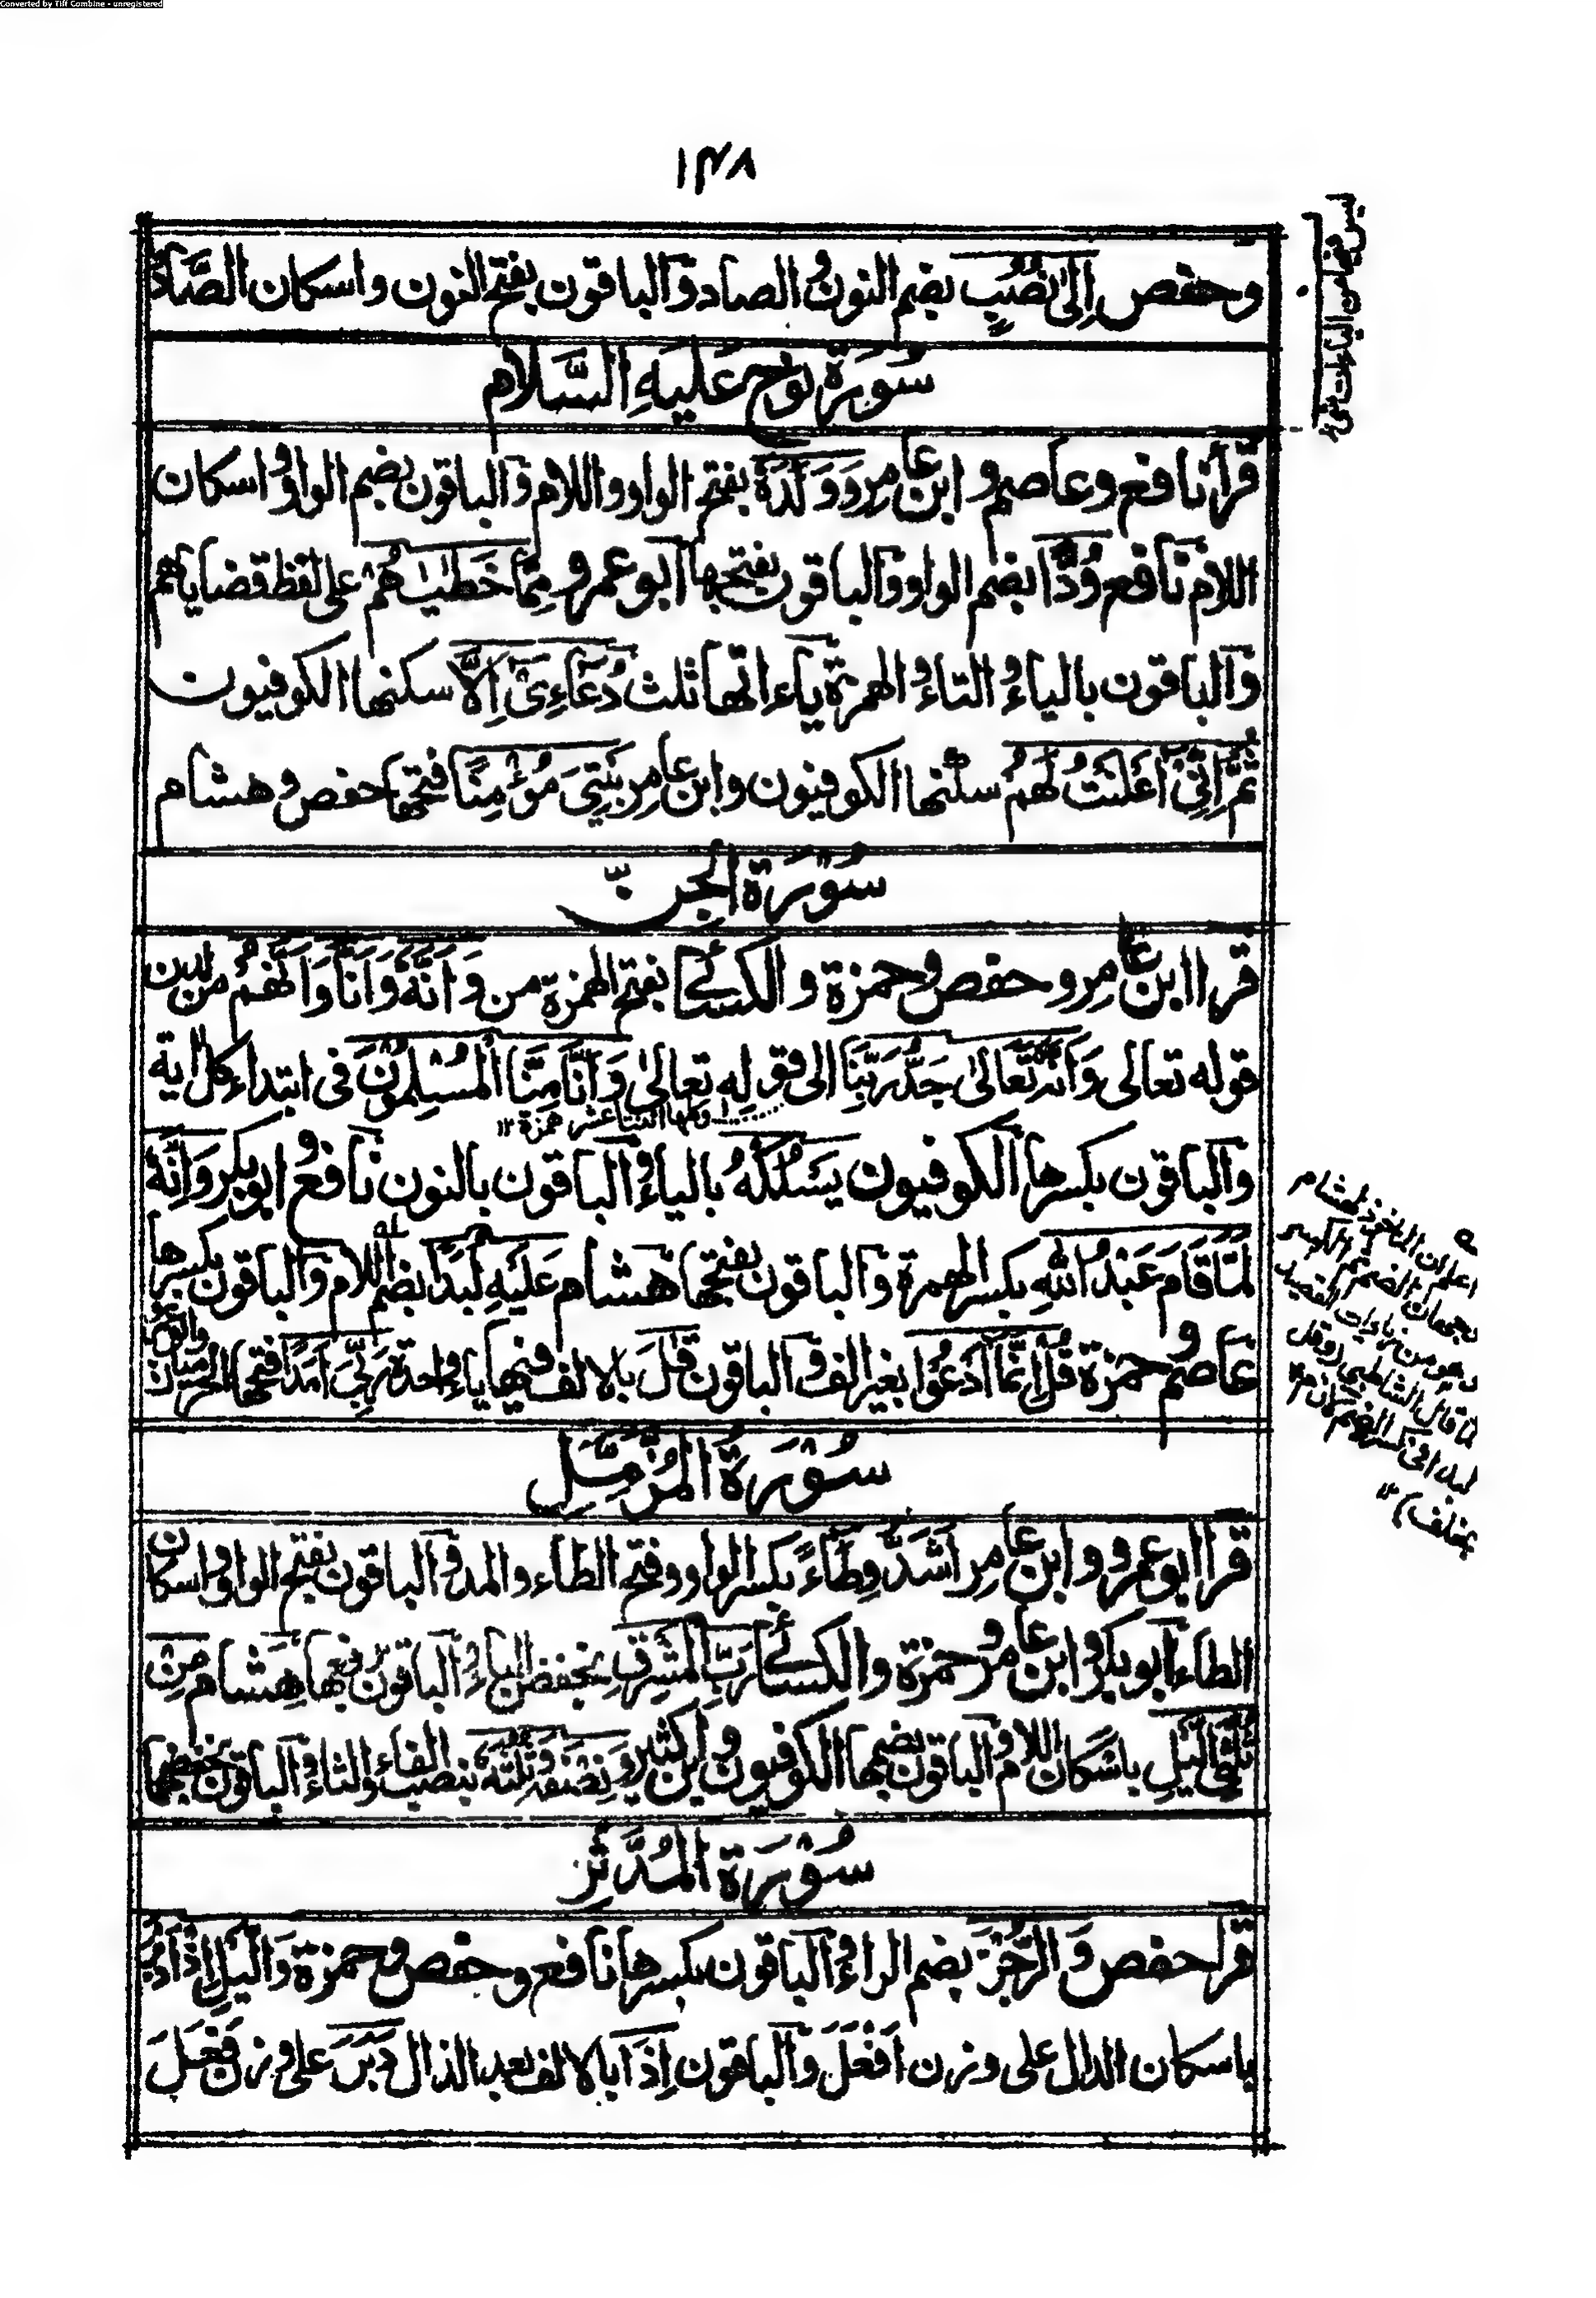 Converted by Tiff Combine - unregistered
١٣٨
وحفص اِلىٰ نُصُبٍ بضم النون و الصاد و الباقون بفتح النون و اسكان الصَّاد
ليس فيها من الياءات شئ
سُوْرَة نوح عَلَيهِ السَّلَام
قرأ نافع و عاصم و ابن عامِر وَوَلَدُهٗ بفتح الواو و اللام و الباقون بضم الواو و اسكان
اللام نافع وُدًّا بضم الواو و الباقون بفتحها ابو عمرو مِمَّا خَطٰيٰـهُمْ على لفظ قضاياهم
و الباقون بالياء و التاء و الهمزة ياءاتها ثلث دُعَآءِىْٓ اِلَّا سكنها الكوفيون
ثُمَّ اِنِّىْٓ اَعْلَنْتُ لَهُمْ سكنها الكوفيون و ابن عامِر بَيْتِىَ مُؤْمِنًا فتحها حفص و هشام
سُوْرَة الجِنّ
قرا ابن عامِر و حفص و حمزة و الكسائى بفتح الهمزة من وَاَنَّهٗ وَاَنَّا وَاَنَّهُمْ من لدن
قوله تعالى وَاَنَّهٗ تَعَالىٰ جَدُّ رَبِّنَا الى قوله تعالىٰ وَاَنَّا مِنَّا الْمُسْلِمُوْنَ فى ابتداء كل اية
وهما اثنتا عشر همزة ١٢
و الباقون بكسرها الكوفيون يَسْلُكْهُ بالياء و الباقون بالنون نافع و ابو بكر وَاِنَّهٗ
لَمَّا قَامَ عَبْدُ اللهِ بكسر الهمزة و الباقون بفتحها هشام عَلَيْهِ لُبَدًا بضم اللام و الباقون بكسرها
عاصم و حمزة قُلْ اِنَّمَآ اَدْعُوْا بغير الف و الباقون قَالَ بالالف و فيها ياء واحدة رَبِّىْٓ اَمَدًا فتحها الحرميان و ابو عمرو
اعلم ان الماخوذ لهشام
وجهان الضم ثم الكسر
وهو من زيادات القصيد
كما قال الشاطبى و قل
لبدا فى كسره الضم
بخلف) ١٢
سُوْرَةُ المُزَّمِّلِ
قرا ابو عمرو و ابن عامِر اَشَدُّ وِطَآءً بكسر الواو و فتح الطاء و المد و الباقون بفتح الواو و اسكان
الطاء ابو بكر و ابن عامر و حمزة و الكسائى رَبِّ الْمَشْرِقِ بخفض الباء و الباقون برفعها هشام مِنْ
ثُلْثَىِ الَّيْلِ باسكان اللام و الباقون بضمها الكوفيون و ابن كثير وَنِصْفَهٗ وَثُلُثَهٗ بنصب الفاء و الثاء و الباقون بخفضهما
سُوْرَة المُدَّثِّر
قرا حفص وَ الرُّجْزَ بضم الراء و الباقون بكسرها نافع و حفص و حمزة وَالَّيْلِ اِذْ اَدْبَرَ
باسكان الذال على وزن اَفْعَلَ و الباقون اِذَا بالالف بعد الذال دَبَرَ على وزن فَعَلَ